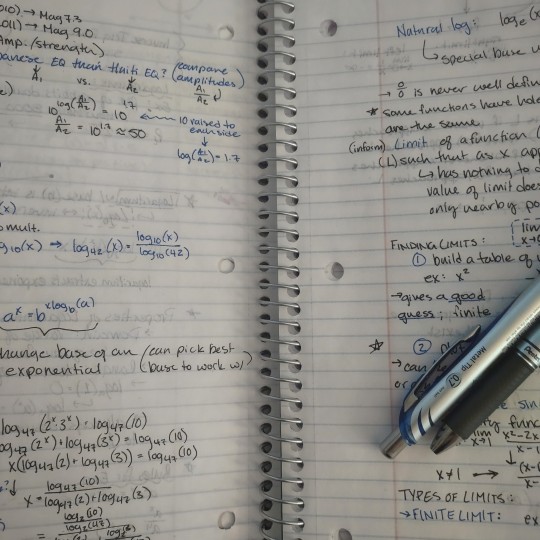 010). → Mag 7.3
011) → Mag 9.0
Amp./strength)
panese EQ than Haiti EQ? (compare
A₁ vs. A₂ amplitudes)
A₁/A₂
10^log(A₁/A₂) = 10^1.7 ← 10 raised to
each side
A₁/A₂ = 10^1.7 ≈ 50
↓
log(A₁/A₂) = 1.7
(x)
mult.
g₁₀(x) ⇒ log₄₂(x) = log₁₀(x)/log₁₀(42)
aˣ = b^xlog_b(a)
hange base of an (can pick best
exponential base to work w/)
log₄₇(2ˣ·3ˣ) = log₄₇(10)
og₄₇(2ˣ) + log₄₇(3ˣ) = log₄₇(10)
x(log₄₇(2) + log₄₇(3)) = log₄₇(10)
? ↓
x = log₄₇(10)/log₄₇(2)+log₄₇(3)
Natural log: log_e(x
↳ special base
→ 0/0 is never well defin
* some functions have hole
are the same
(inform) Limit of a function (
(L) such that as x app
↳ has nothing to d
value of limit does
only nearby po
FINDING LIMITS: lim
① build a table of
ex: x²
→ gives a good
guess; finite
☆ ②
→ can
or
sin
func
lim x→1 x²-2x
↓
x≠1 → (x-
x-
TYPES OF LIMITS:
→ FINITE LIMIT: ex